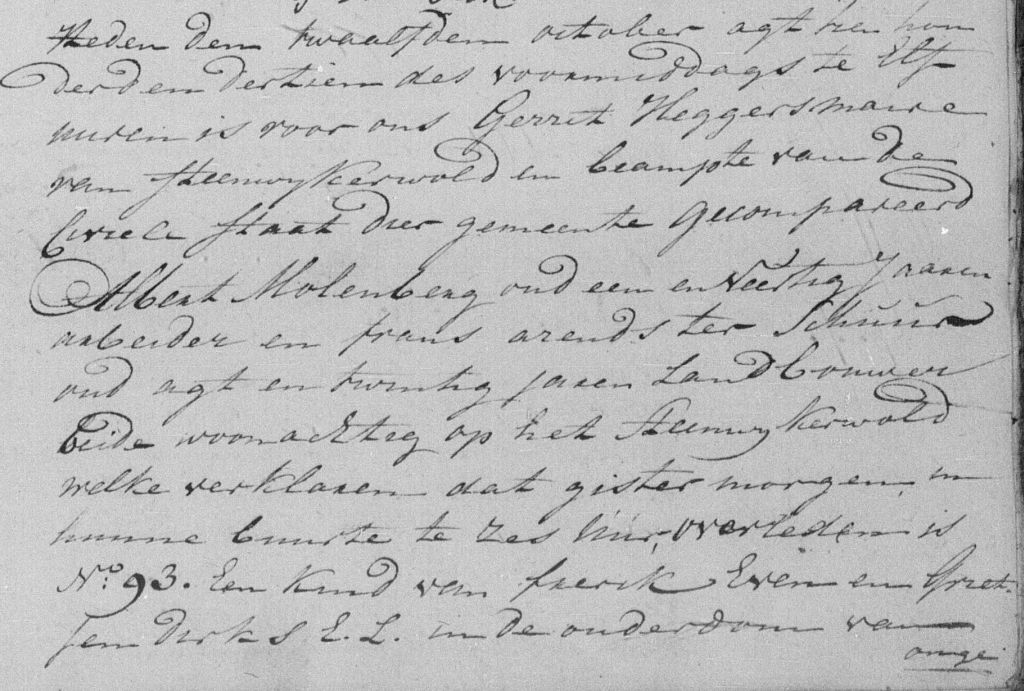 Heden den twaalfden october agttien hon
derd en dertien des voormiddags te Elf
uuren is voor ons Gerrit Heggers maire
van Steenwykerwold en beampte van de
Civiele staat dier gemeente gecompareerd
Albert Molenberg oud een en Veertig Jaaren
arbeider en frans arends ter Schuur
oud agt en twintig jaren Landbouwer
beide woonachteg op het Steenwykerwold
welke verklaren dat gister morgen in
hunne buurte te zes uur, overleden is
No. 93. Een kind van freerk Even en Griet-
jen Dirks E. L. in de ouderdom van